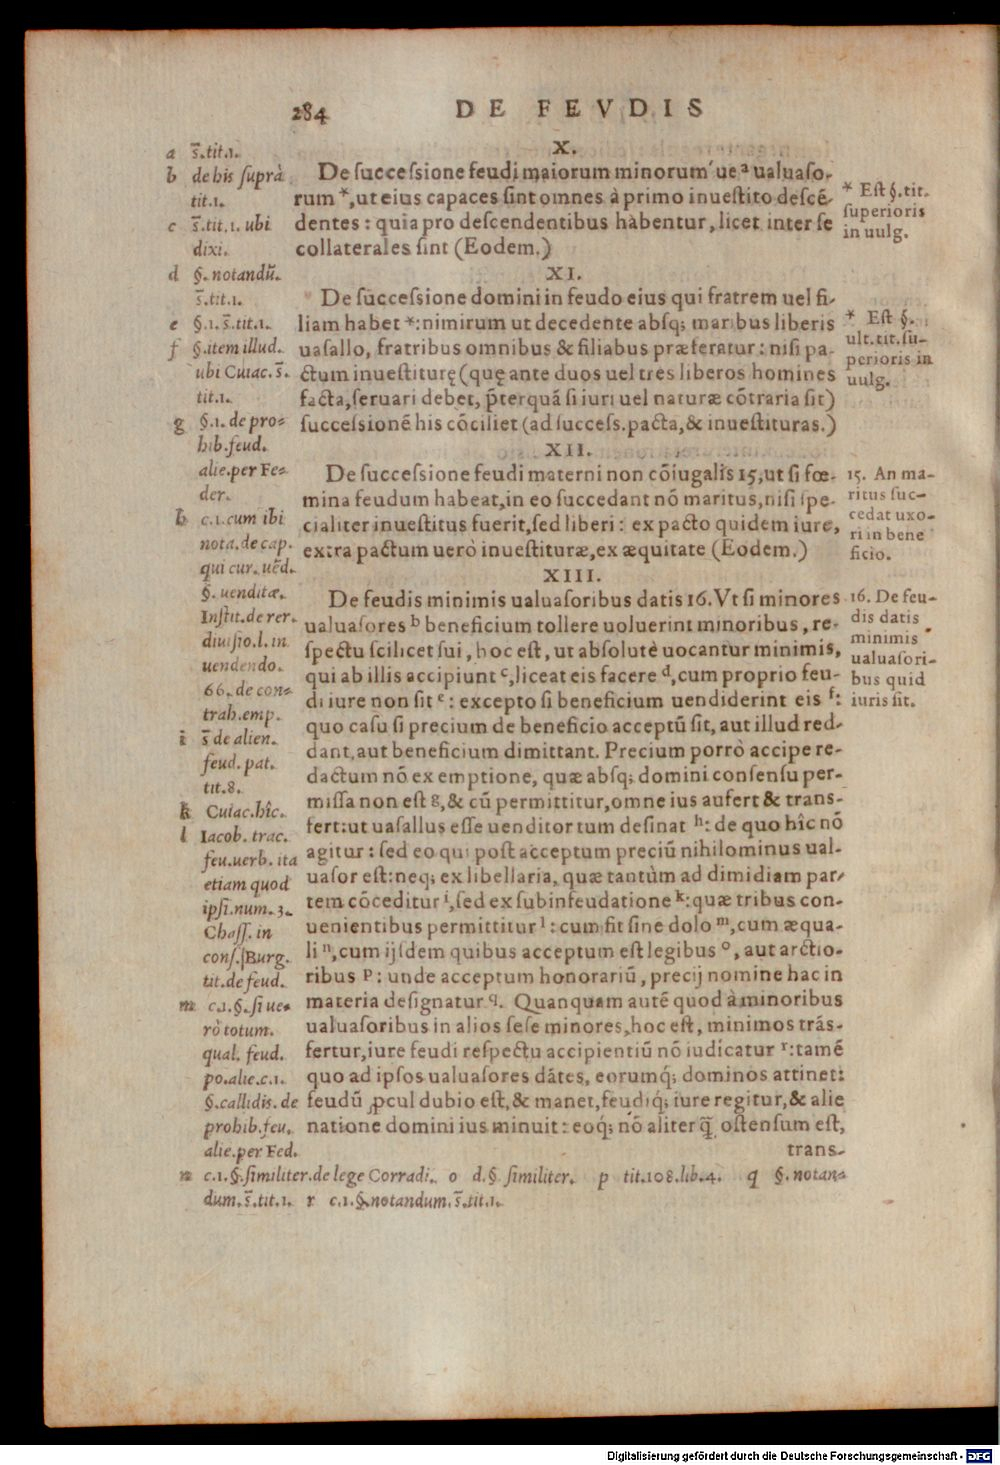 284 DE FEVDIS
X.
De ſucceſsione feudi maiorum minorum´ue ᵃ ualuaſo-
rum *, ut eius capaces ſint omnes à primo inueſtito deſcē-
dentes: quia pro deſcendentibus habentur, licet inter ſe
collaterales ſint (Eodem.)
XI.
De ſucceſsione domini in feudo eius qui fratrem uel fi-
liam habet *: nimirum ut decedente abſq; maribus liberis
uaſallo, fratribus omnibus & filiabus præferatur: niſi pa-
ctum inueſtiturę (quę ante duos uel tres liberos homines
facta, ſeruari debet, p̄terquā ſi iuri uel naturæ cōtraria ſit)
ſucceſsionē his cōciliet (ad ſucceſs. pacta, & inueſtituras.)
XII.
De ſucceſsione feudi materni non cōiugalis 15, ut ſi fœ-
mina feudum habeat, in eo ſuccedant nō maritus, niſi ſpe-
cialiter inueſtitus fuerit, ſed liberi: ex pacto quidem iure,
extra pactum uerò inueſtituræ, ex æquitate (Eodem.)
XIII.
De feudis minimis ualuaſoribus datis 16. Vt ſi minores
ualuaſores ᵇ beneficium tollere uoluerint minoribus, re-
ſpectu ſcilicet ſui, hoc eſt, ut abſolutè uocantur minimis,
qui ab illis accipiunt ᶜ, liceat eis facere ᵈ, cum proprio feu-
di iure non ſit ᵉ: excepto ſi beneficium uendiderint eis ᶠ:
quo caſu ſi precium de beneficio acceptū ſit, aut illud red-
dant, aut beneficium dimittant. Precium porrò accipe re-
dactum nō ex emptione, quæ abſq; domini conſenſu per-
miſſa non eſt ᵍ, & cū permittitur, omne ius aufert & trans-
fert: ut uaſallus eſſe uenditor tum deſinat ʰ: de quo hîc nō
agitur: ſed eo qui poſt acceptum preciū nihilominus ual-
uaſor eſt: neq; ex libellaria, quæ tantùm ad dimidiam par-
tem cōceditur ⁱ, ſed ex ſubinfeudatione ᵏ: quæ tribus con-
uenientibus permittitur ˡ: cum fit ſine dolo ᵐ, cum æqua-
li ⁿ, cum ijſdem quibus acceptum eſt legibus ᵒ, aut arctio-
ribus ᵖ: unde acceptum honorariū, precij nomine hac in
materia deſignatur q. Quanquam autē quod à minoribus
ualuaſoribus in alios ſeſe minores, hoc eſt, minimos trāſ-
fertur, iure feudi reſpectu accipientiū nō iudicatur ʳ: tamē
quo ad ipſos ualuaſores dātes, eorumq́; dominos attinet:
feudū ꝓcul dubio eſt, & manet, feudiq́; iure regitur, & alie
natione domini ius minuit: eoq́; nō aliter q̄ oſtenſum eſt,
trans-
a s̄.tit.1.
b de his ſuprà
tit.1.
c s̄.tit.1. ubi
dixi.
d §. notandū.
s̄.tit.1.
e §.1. s̄.tit.1.
f §.item illud.
ubi Cuiac. s̄.
tit.1.
g §.1. de pro-
hib.feud.
alie.per Fe-
der.
h c.1.cum ibi
nota.de cap.
qui cur. uēd.
§. uenditæ.
Inſtit.de rer.
diuiſio.l. in
uendendo.
66. de con-
trah.emp.
i s̄ de alien.
feud. pat.
tit.8.
k Cuiac.hîc.
l Iacob. trac.
feu.uerb. ita
etiam quod
ipſi.num.3.
Chaſſ. in
conſ. Burg.
tit.de feud.
m c.1.§.ſi ue-
rò totum.
qual. feud.
po.alie.c.1.
§.callidis. de
prohib.feu.
alie.per Fed.
n c.1.§.ſimiliter.de lege Corradi. o d.§ ſimiliter. p tit.108.lib.4. q §. notan-
dum.s̄.tit.1. r c.1.§.notandum.s̄.tit.1.
* Eſt §.tit.
ſuperioris
in uulg.
* Eſt §.
ult.tit.ſu-
perioris in
uulg.
15. An ma-
ritus ſuc-
cedat uxo-
ri in bene
ficio.
16. De feu-
dis datis
minimis
ualuaſori-
bus quid
iuris ſit.
Digitalisierung gefördert durch die Deutsche Forschungsgemeinschaft - DFG